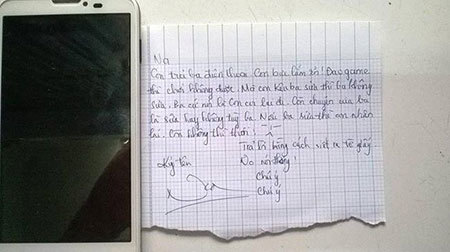 Na
Con trả ba điện thoại. Con bựa lắm rồi! Dao game
thì chơi không được. Mở con kêu ba sửa thì ba không
sửa. Ba cứ nói là Còn cú lại đi. Còn chuyện của ba
là sửa hay không tuỳ ba. Nếu ba sửa thì con nhận
lại. Còn không thì thôi!
Trả lời bằng cách viết ra tờ giấy.
No nói thẳng!
Ký tên
Chú ý
Chú ý